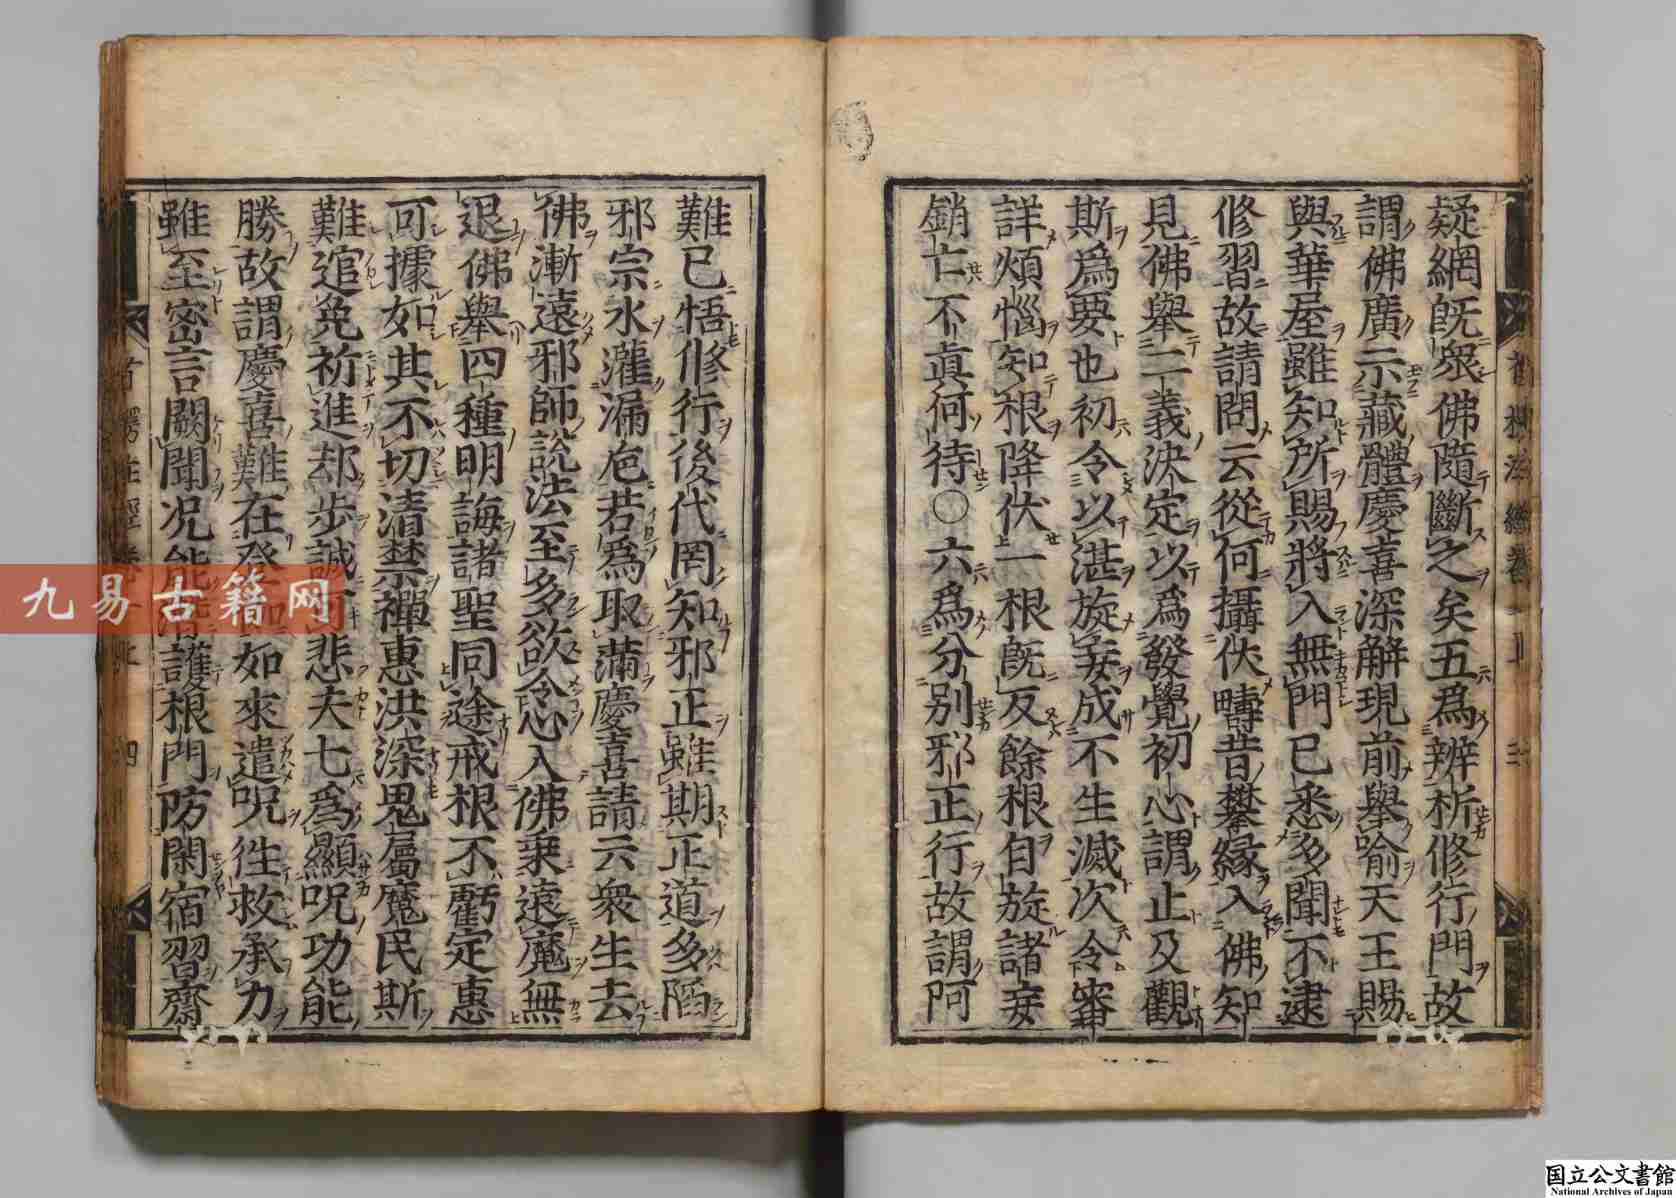 疑網旣眾佛隨斷之矣五爲辨析修行門故
謂佛廣示藏體慶喜深解現前舉喻天王賜
與華屋雖知所賜將入無門已悉多聞不逮
修習故請問云從何攝伏疇昔攀緣入佛知
見佛舉二義決定以爲發覺初心謂止及觀
斯爲要也初令以湛旋妄成不生滅次令審
詳煩惱知根降伏一根旣反餘根自旋諸妄
銷亡不真何待〇六爲分別邪正行故謂阿
難已悟修行後代罔知邪正雖期正道多陷
邪宗水灌漏巵若爲取滿慶喜請云眾生去
佛漸遠邪師說法至多欲令心入佛乗遠魔無
退佛舉四種明誨諸聖同途戒根不虧定惠
可據如其不切清禁禪惠洪深鬼屬魔民斯
難逭免祈進却步誠可悲夫七爲顯呪功能
勝故謂慶喜難在登如來遣呪徃救承力
雖至密言闕聞况能護根門防閑宿習齋
九易古籍网
国立公文書館
National Archives of Japan